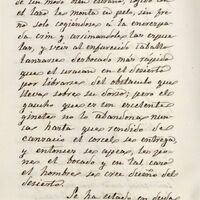 de un modo bien
el lazo lo monta en pelo, sin ya
no solo cogiéndose a la encrespa
da crin y arrimándole las espue
las, y veis al enfurecido caballo
lanzarse desbocado mas rápido
que el huracan en el desierto
por librarse del obstáculo que
lleva sobre su dorso; pero el
gaucho que es un excelente
ginete no lo abandona nun
ca hasta que rendido de
cansancio el corcel se entrega,
y entonces se apea, le po
ne el bocado y en tal caso
el hombre se cree dueño del
desierto.
Se ha estado en duda